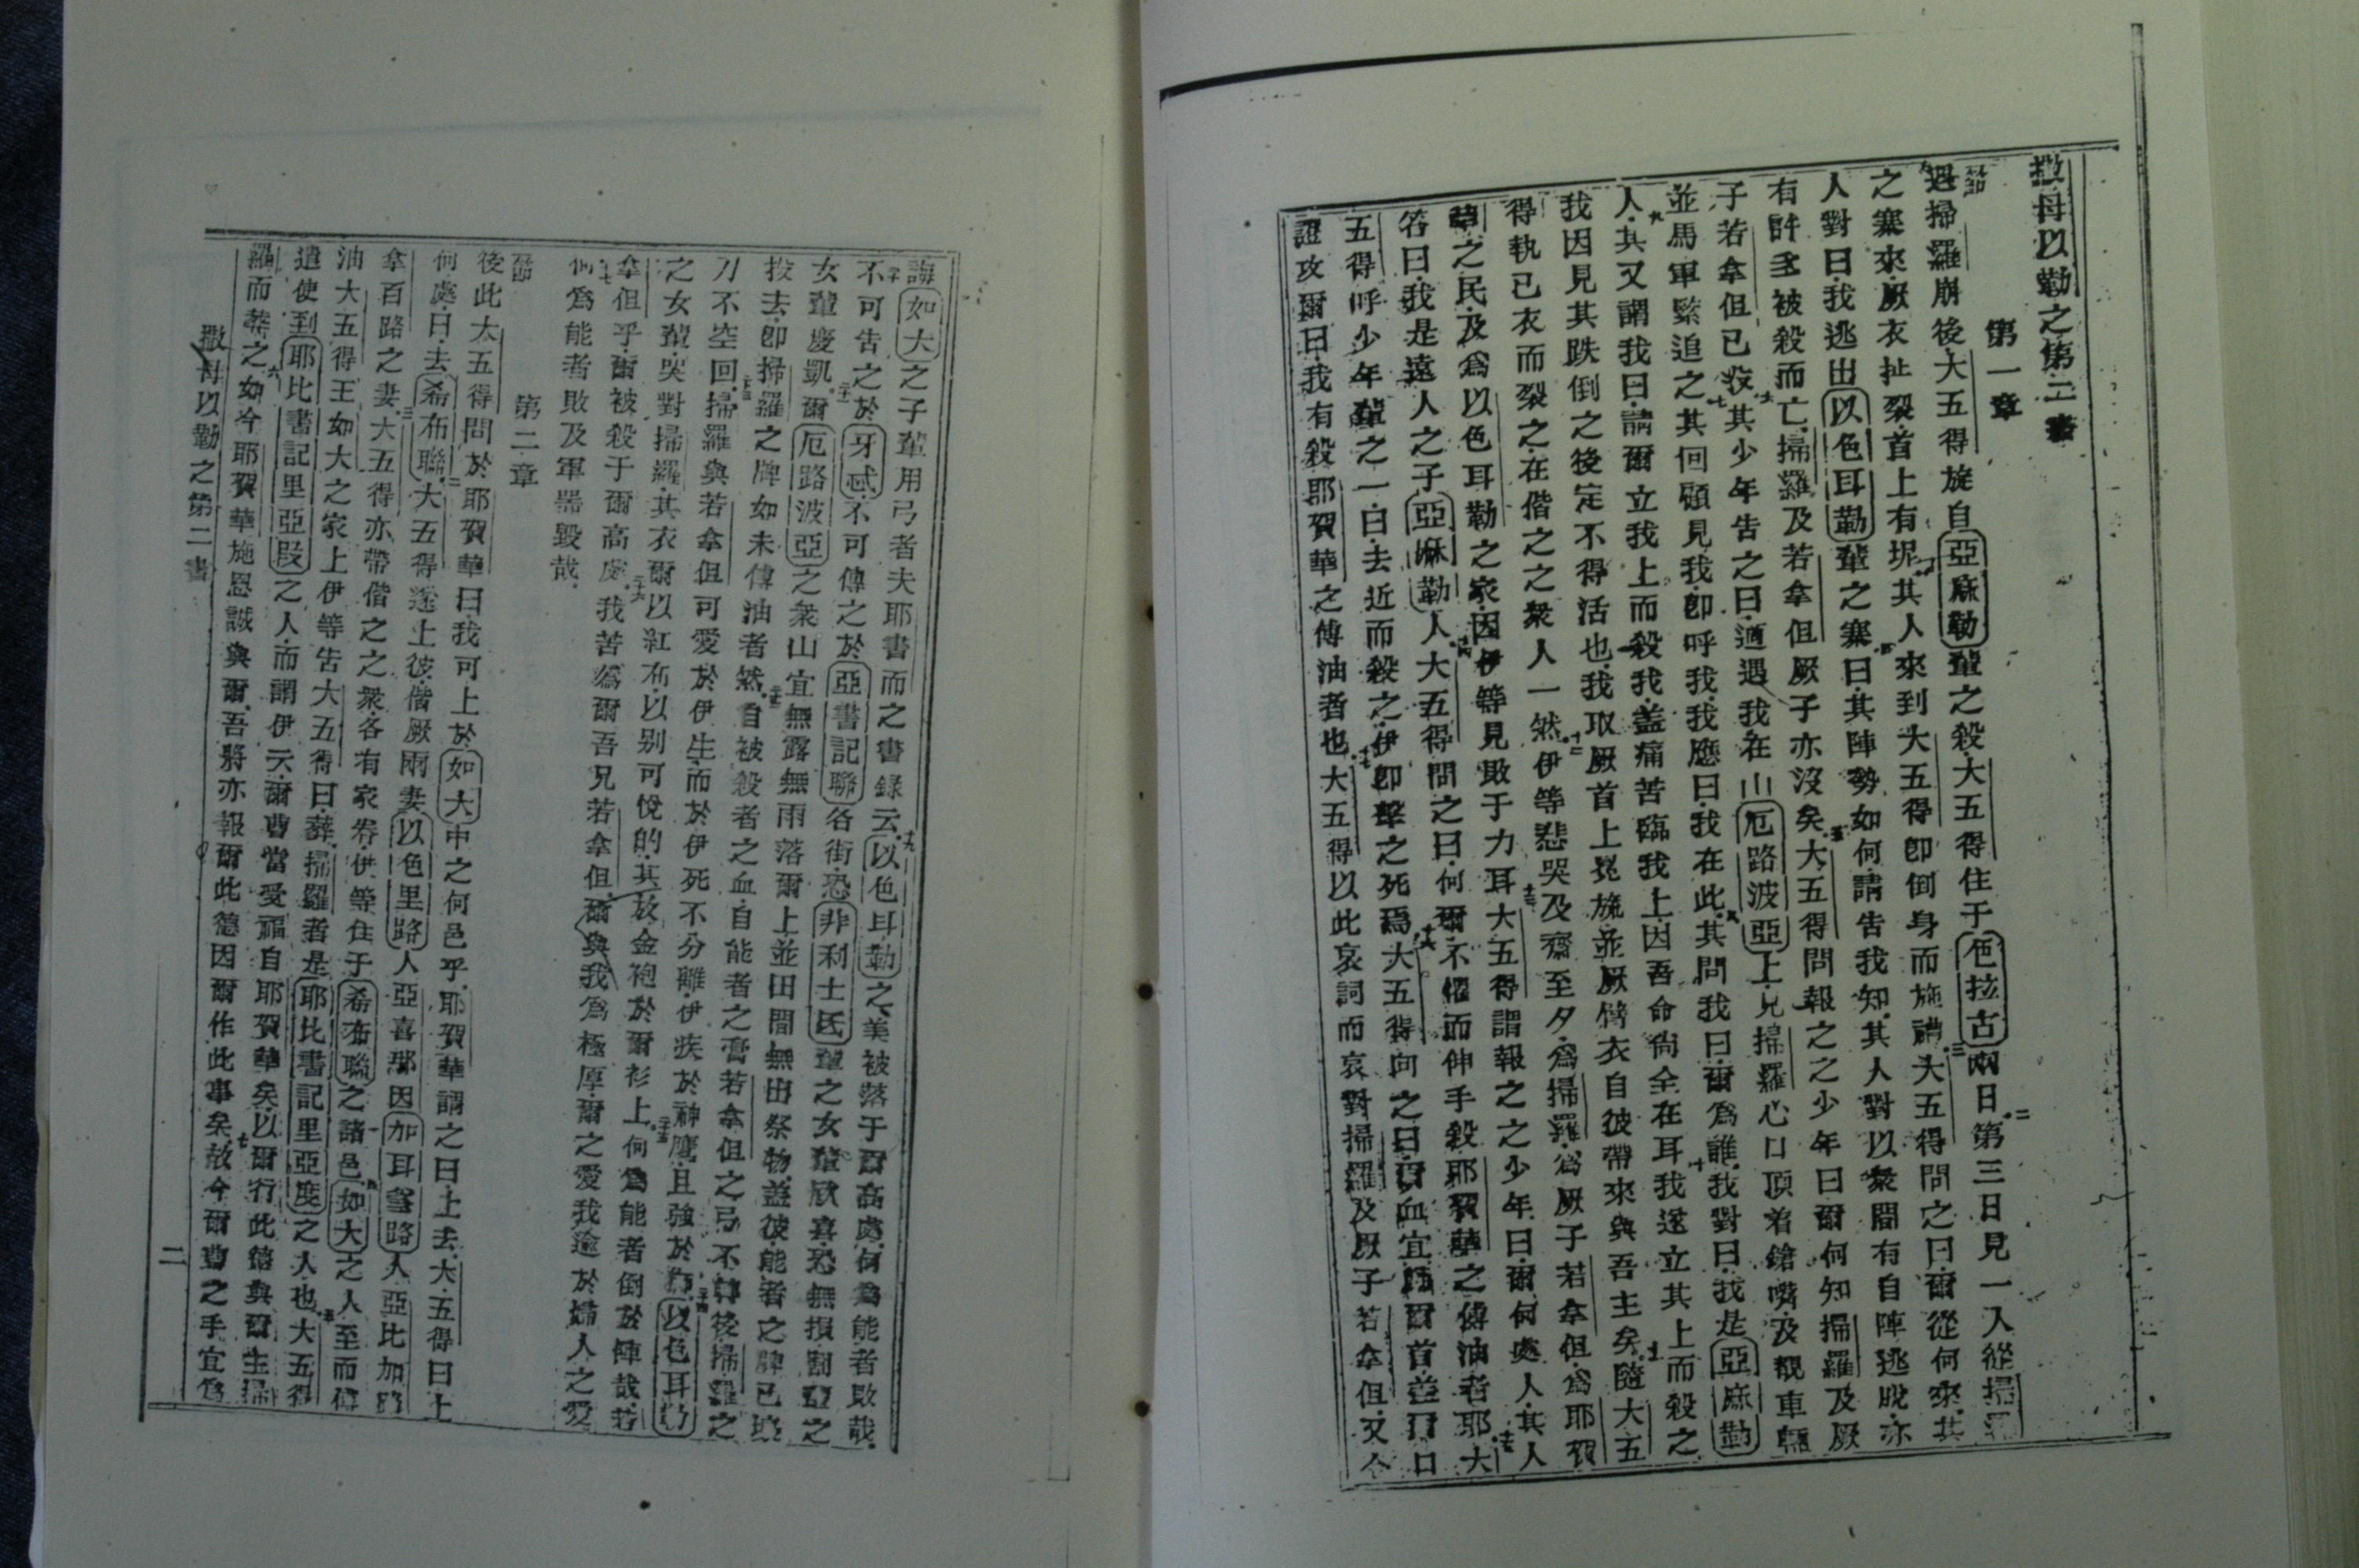 撒母以勒之第二書
第一章
節
遇掃羅崩後大五得旋自亞麻勒輩之殺大五得住于卮拉古兩日二第三日見一人從掃羅
之寨來厥衣扯裂首上有坭其人來到大五得即倒身而施禮三大五得問之曰爾從何來其
人對曰我逃出以色耳勒輩之寨曰四其陣勢如何請告我知其人對以衆間有自陣逃脫亦
有許多被殺而亡掃羅及若拿但厥子亦沒矣五大五得問報之之少年曰爾何知掃羅及厥
子若拿但已沒六其少年告之曰適遇我在山厄路波亞上見掃羅心口頂着鎗嘴及觀車輛
並馬軍緊追之七其回顧見我即呼我我應曰我在此八其問我曰爾爲誰我對曰我是亞麻勒
人九其又謂我曰請爾立我上而殺我葢痛苦臨我上因吾命尙全在耳十我遂立其上而殺之
我因見其跌倒之後定不得活也我取厥首上冕旒並厥臂衣自彼帶來與吾主矣十一隨大五
得執已衣而裂之在偕之之衆人一然十二伊等悲哭及齋至夕爲掃羅爲厥子若拿但爲耶賀
華之民及爲以色耳勒之家因伊等見敗于力耳十三大五得謂報之之少年曰爾何處人其人
答曰我是遠人之子亞麻勒人十四大五得問之曰何爾不懼而伸手殺耶賀華之傅油者耶十五大
五得呼少年輩之一曰去近而殺之伊即擊之死焉十六大五得向之曰爾血宜歸爾首葢爾口
證攻爾曰我有殺耶賀華之傅油者也十七大五得以此哀詞而哀對掃羅及厥子若拿但十八又令
誨如大之子輩用弓者夫耶書而之書錄云十九以色耳勒之美被落于爾高處何爲能者敗哉
二十不可告之於牙忒不可傳之於亞書記聯各街恐非利士氐輩之女輩欣喜恐無損割亞之
女輩慶凱二十一爾厄路波亞之衆山宜無露無雨落爾上並田間無出祭物葢彼能者之牌已
投去即掃羅之牌如未傅油者然二十二自被殺者之血自能者之膏若拿但之弓不轉後掃羅之
刀不空回二十三掃羅與若拿但可愛於伊生而於伊死不分離伊疾於神鷹且強於獅二十四以色耳勒
之女輩哭對掃羅其衣爾以紅布以別可悅的其放金袍於爾衫上二十五何爲能者倒於陣哉若
拿但乎爾被殺于爾高處二十六我苦爲爾吾兄若拿但爾與我爲極厚爾之愛我逾於婦人之愛
二十七何爲能者敗及軍器毀哉
第二章
節
後此大五得問於耶賀華曰我可上於如大中之何邑乎耶賀華謂之曰上去大五得曰上
何處曰去希布聯二大五得遂上彼偕厥兩妻以色里路人亞喜那因加耳害路人亞比加路
拿百路之妻三大五得亦帶偕之之衆各有家眷伊等住于希布聯之諸邑四如大之人至而傅
油大五得王如大之家上伊等告大五得曰葬掃羅者是耶比書記里亞度之人也五大五得
遣使到耶比書記里亞叚之人而謂伊云爾曹當受福自耶賀華矣以爾行此德與爾主掃
羅而葬之六如今耶賀華施恩誠與爾吾將亦報爾此德因爾作此事矣七故今爾曹之手宜爲
撒母以勒之第二書
二